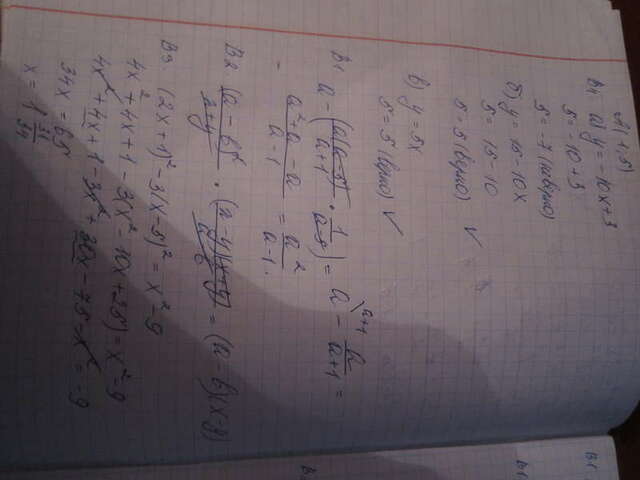 A(1;5)
В4 а) y = -10x+3
5 = -10+3
5 = -7 (неверно)
б) y = 15-10x
5 = 15-10
5 = 5 (верно) √
в) y = 5x
5 = 5 (верно) √
В1 a - (a(a-8)/a+1 · 1/a-8) = a - a/a+1 =
a²+a-a/a-1 = a²/a-1.
В2 (a-b)²/x+y · (x-y)(x+y)/a-b = (a-b)(x-y)
В3. (2x+1)² - 3(x-5)² = x²-9
4x²+4x+1-3(x²-10x+25) = x²-9
4x²+4x+1-3x²+30x-75-x² = -9
34x = 65
x = 1 31/34
В1
В1
В2